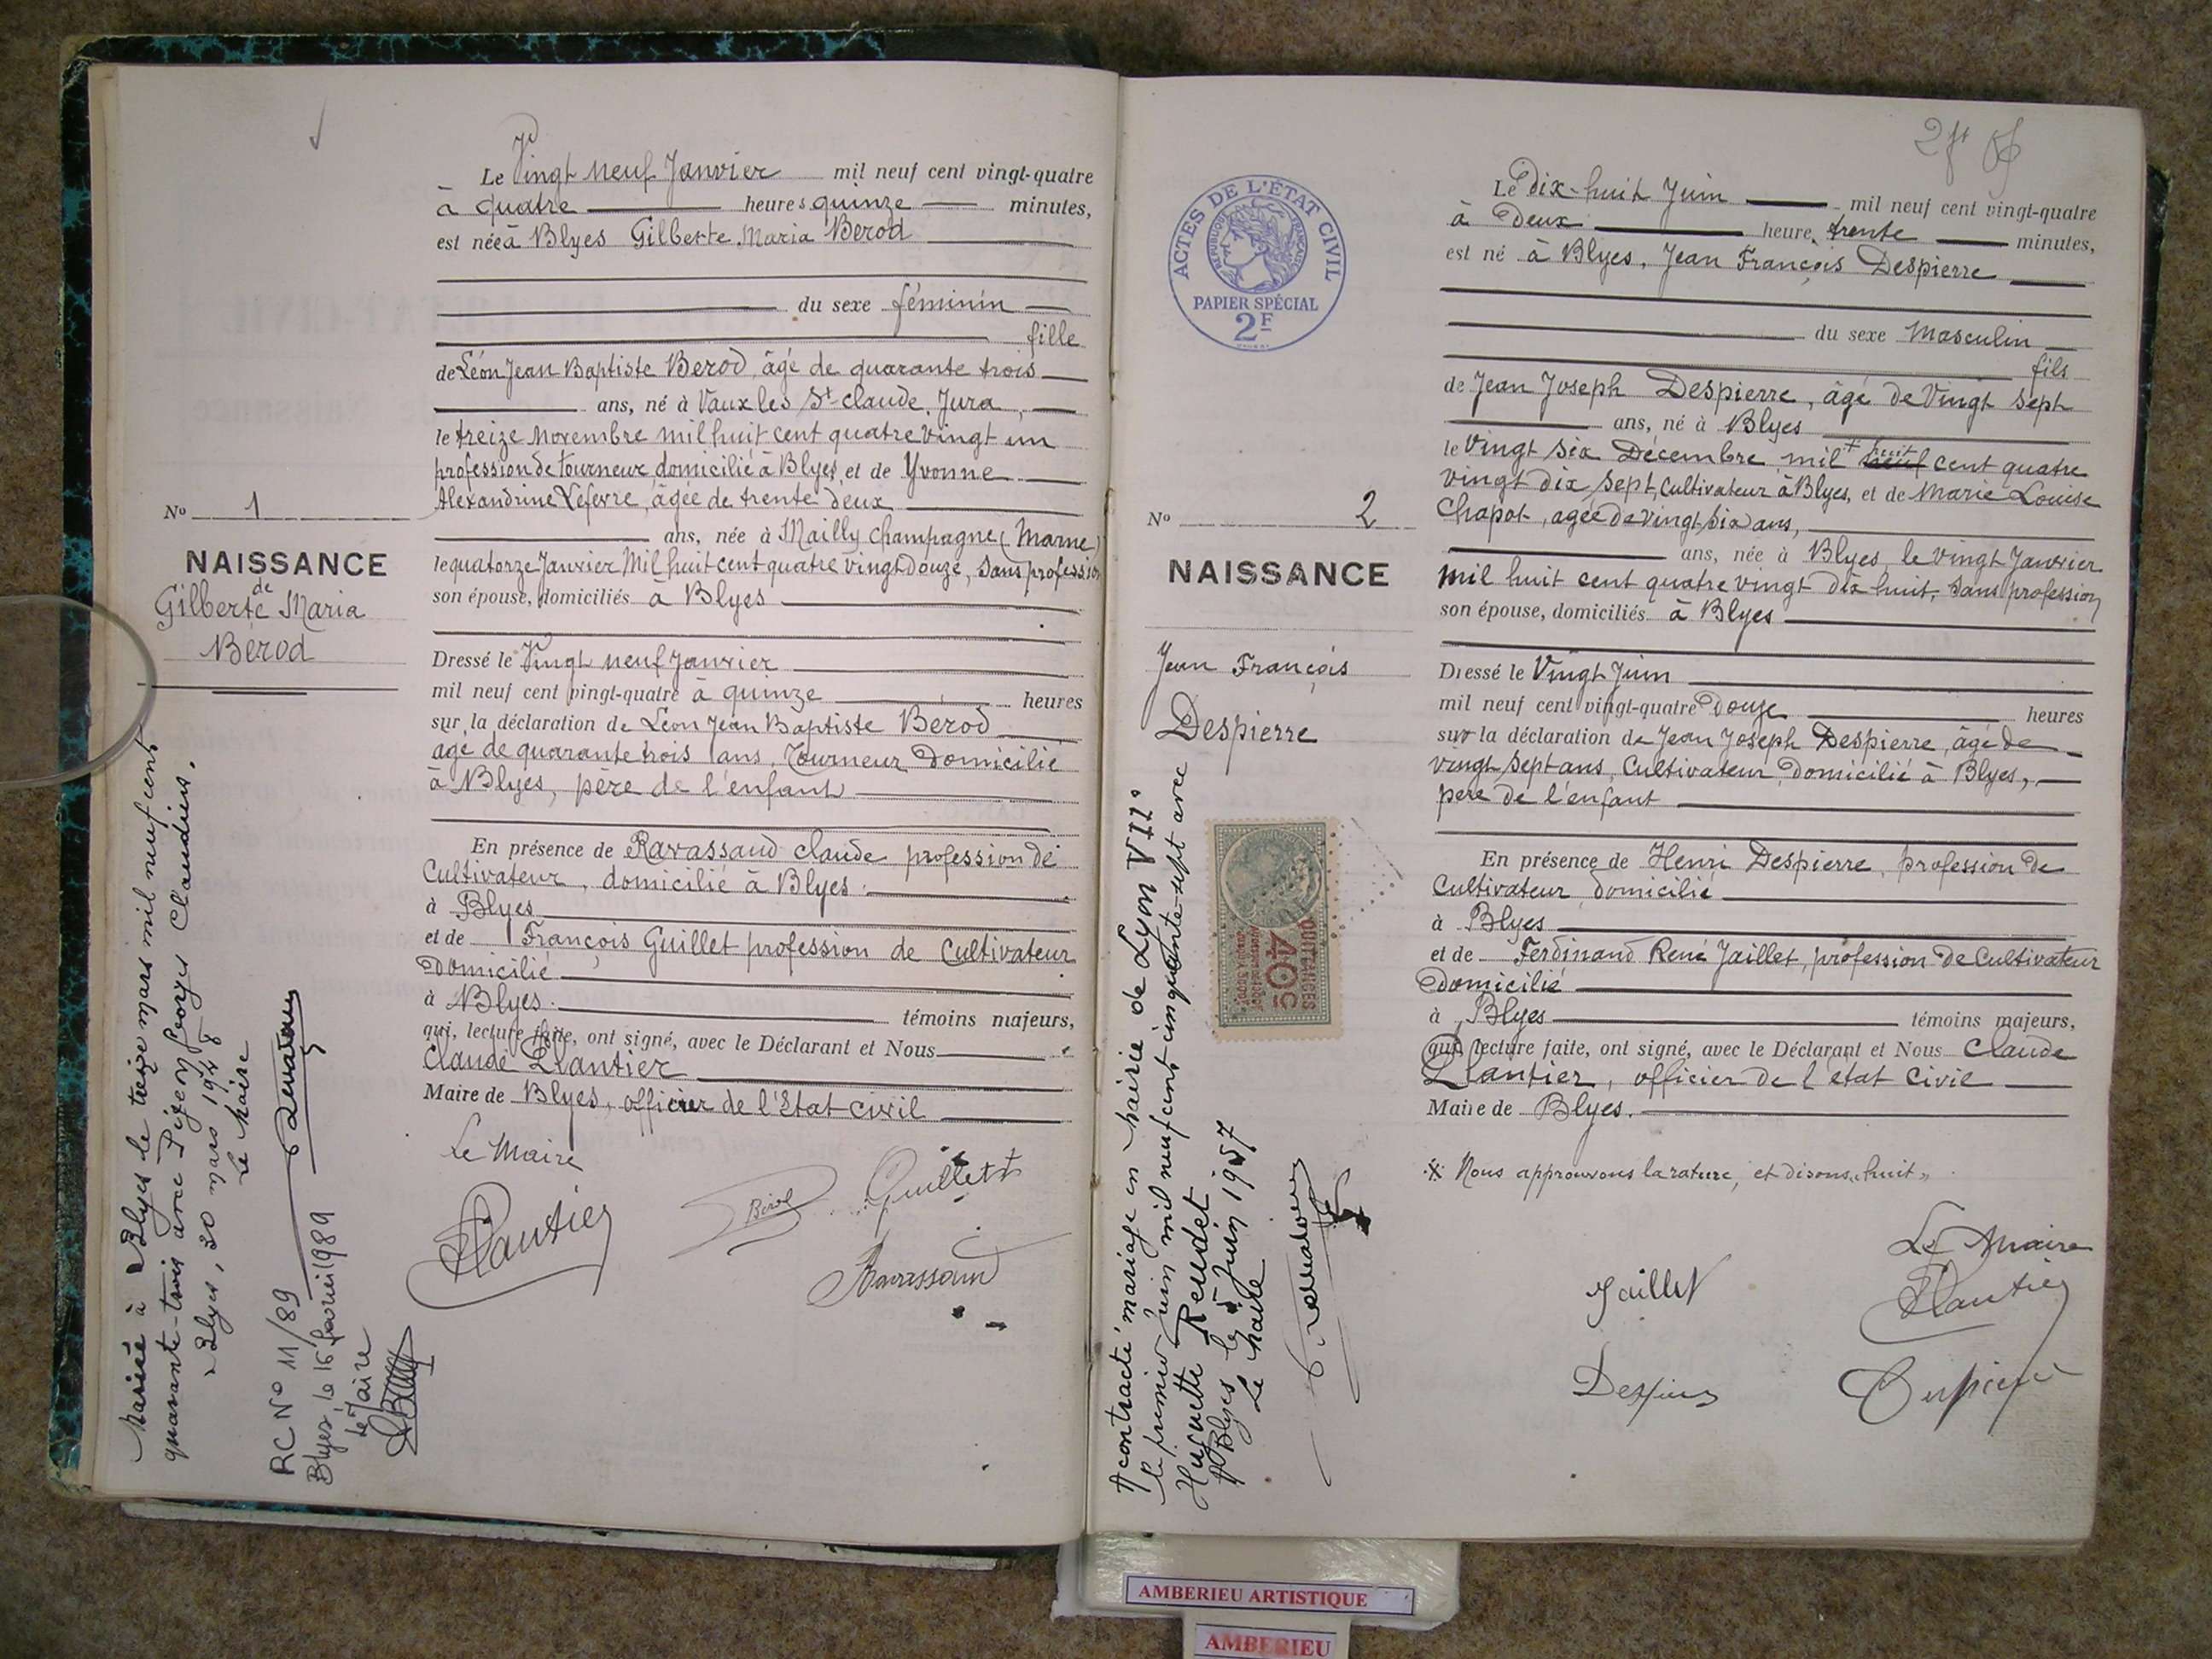 Le Vingt neuf Janvier mil neuf cent vingt-quatre
à quatre heures quinze minutes,
est née à Blyes Gilberte Maria Berod
du sexe féminin
fille
de Léon Jean Baptiste Berod, âgé de quarante trois
ans, né à Vaux les St-Claude, Jura,
le treize Novembre mil huit cent quatre vingt un
profession de tourneur, domicilié à Blyes, et de Yvonne
Alexandrine Lefevre, âgée de trente deux
ans, née à Mailly Champagne (Marne)
le quatorze Janvier Mil huit cent quatre vingt douze, sans profession
son épouse, domiciliés à Blyes
Dressé le Vingt neuf Janvier
mil neuf cent vingt-quatre à quinze heures
sur la déclaration de Léon Jean Baptiste Bérod
agé de quarante trois ans, Tourneur Domicilié
à Blyes, père de l'enfant
En présence de Ravassaud Claude profession de
Cultivateur, domicilié à Blyes.
à Blyes
et de François Guillet profession de Cultivateur
Domicilié
à Blyes. témoins majeurs,
qui, lecture faite, ont signé, avec le Déclarant et Nous
Claude Plantier
Maire de Blyes, officier de l'Etat civil
Le Maire
Plantier
Bérod
Guillet
Ravassaud
No 1
NAISSANCE
de
Gilberte Maria
Bérod
Mariée à Blyes le treize mars mil neuf cent
quarante-trois avec Georges Claudius.
Blyes, 20 mars
Le Maire
RC No 11/89
Blyes, le 16 février 1989
le Maire
ACTES DE L'ÉTAT CIVIL
RÉPUBLIQUE FRANÇAISE
PAPIER SPÉCIAL
2F
No 2
NAISSANCE
Jean François
Despierre
QUITTANCES
40c
A contracté mariage en mairie de Lyon VII°
le premier juin mil neuf cent cinquante-sept avec
Huguette Reudet
A Blyes le 5 juin 1957
Le Maire
Le dix-huit Juin mil neuf cent vingt-quatre
à Deux heure, trente minutes,
est né à Blyes, Jean François Despierre
du sexe Masculin
fils
de Jean Joseph Despierre, âgé de Vingt sept
ans, né à Blyes
le Vingt six Décembre mil + huit neuf cent quatre
vingt dix sept, Cultivateur à Blyes, et de Marie Louise
Chapot, agée de vingt six ans,
ans, née à Blyes, le vingt Janvier
mil huit cent quatre vingt dix huit, sans profession
son épouse, domiciliés à Blyes
Dressé le Vingt Juin
mil neuf cent vingt-quatre Douze heures
sur la déclaration de Jean Joseph Despierre, âgé de
vingt sept ans, Cultivateur, Domicilié à Blyes,
père de l'enfant
En présence de Henri Despierre, profession de
Cultivateur domicilié
à Blyes
et de Ferdinand René Jaillet, profession de Cultivateur
Domicilié
à Blyes témoins majeurs,
qui, lecture faite, ont signé, avec le Déclarant et Nous Claude
Plantier, officier de l'état civil
Maire de Blyes.
Nous approuvons la rature, et disons "huit"
Le Maire
Jaillet
Plantier
Despierre
Despierre
AMBERIEU ARTISTIQUE
AMBERIEU